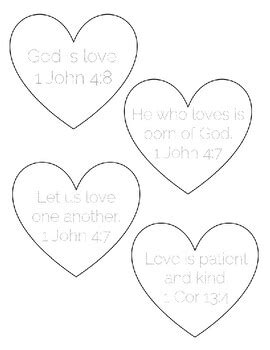 God is love.
1 John 4:8
He who loves is
born of God.
1 John 4:7
Let us love
one another.
1 John 4:7
Love is patient
and kind
1 Cor 13:4